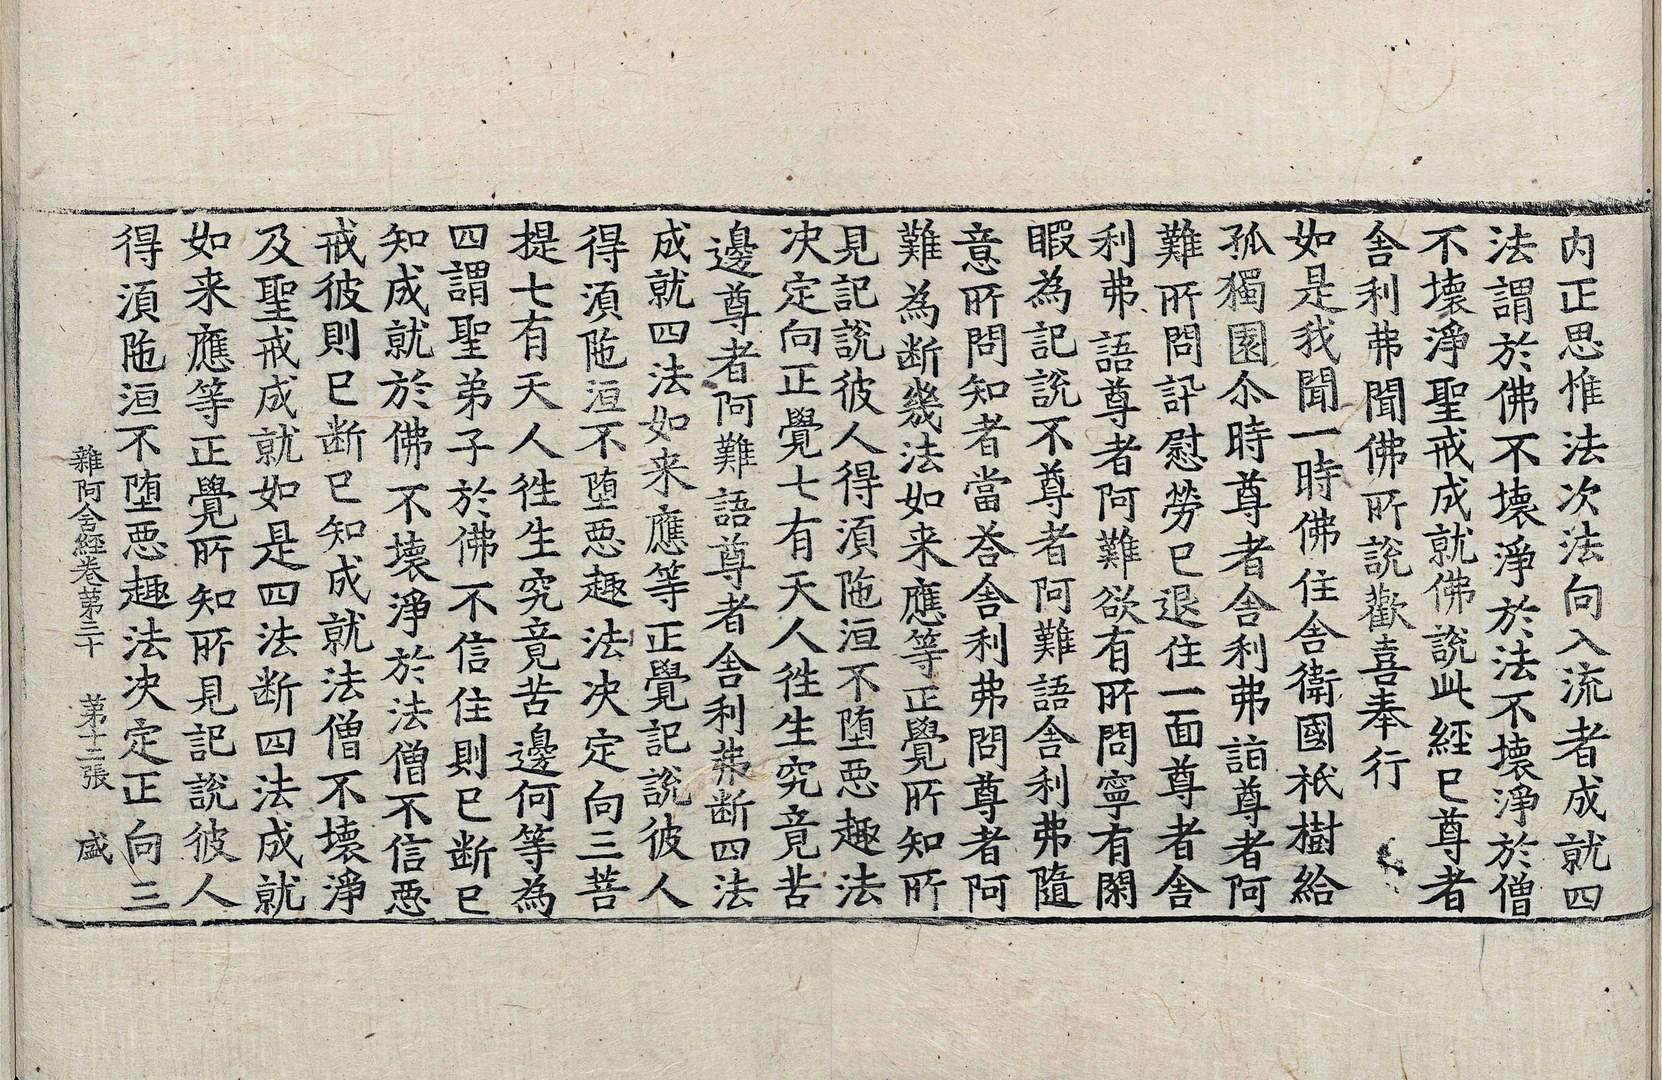 内正思惟法次法向入流者成就四
法謂於佛不壞淨於法不壞淨於僧
不壞淨聖戒成就佛說此經已尊者
舍利弗聞佛所說歡喜奉行
如是我聞一時佛住舍衛國祇樹給
孤獨園尒時尊者舍利弗詣尊者阿
難所問訊慰勞已退住一面尊者舍
利弗語尊者阿難欲有所問寧有閑
暇為記說不尊者阿難語舍利弗隨
意所問知者當荅舍利弗問尊者阿
難為斷幾法如来應等正覺所知所
見記說彼人得湏陁洹不堕惡趣法
决定向正覺七有天人徃生究竟苦
邊尊者阿難語尊者舍利弗断四法
成就四法如来應等正覺記說彼人
得湏陁洹不堕惡趣法决定向三菩
提七有天人徃生究竟苦邊何等為
四謂聖弟子於佛不信住則已断已
知成就於佛不壞淨於法僧不信惡
戒彼則已断已知成就法僧不壞淨
及聖戒成就如是四法断四法成就
如来應等正覺所知所見記說彼人
得湏陁洹不堕惡趣法决定正向三
雜阿含經卷第三十 第十二張 盛